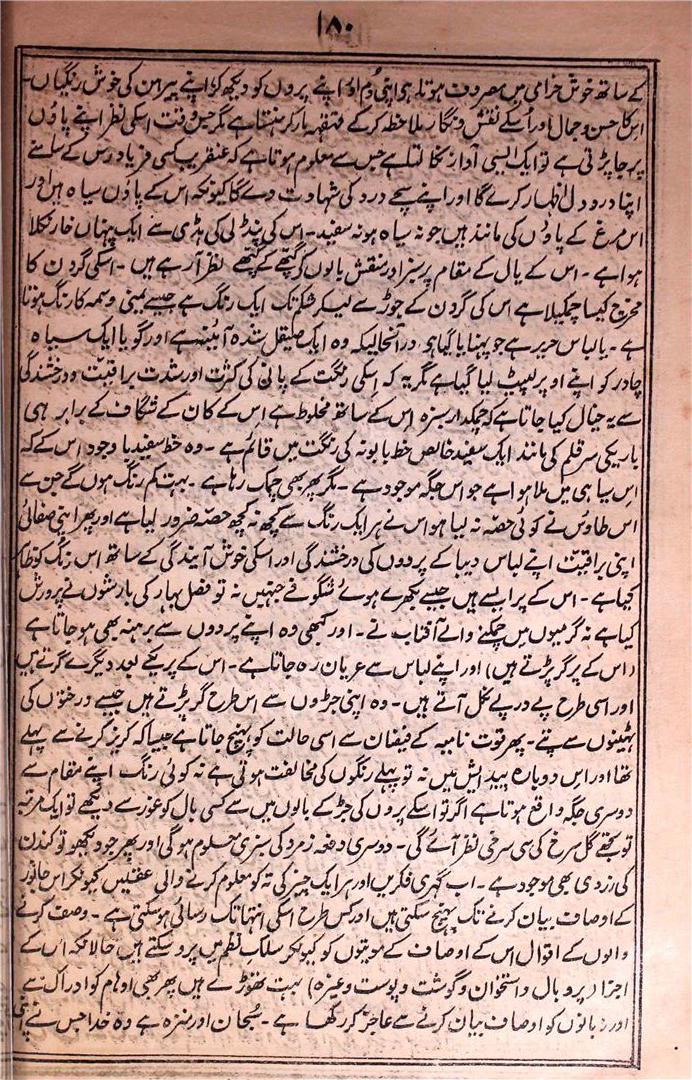 ۱۸۰
کے ساتھ خوش خرامی میں مصروف ہوتا ہے اپنی دُم اور اپنے پروں کو دیکھ کر اپنے پیرہن کی خوش رنگیاں
اس کا حسن و جمال اور اُسکے نقش و نگار ملاحظہ کرکے قہقہہ مار کر ہنستا ہے مگر جس وقت اسکی نظر اپنے پاؤں
پر جا پڑتی ہے تو ایک ایسی آواز نکالتا ہے جس سے معلوم ہوتا ہے کہ عنقریب کسی فریاد رس کے سامنے
اپنا درد دل اظہار کرے گا اور اپنے سچے درد کی شہادت دے گا کیونکہ اس کے پاؤں سیاہ ہیں اور
اس مرغ کے پاؤں کی مانند ہیں جو نہ سیاہ ہو نہ سفید۔ اس کی پنڈلی کی ہڈی سے ایک پنہاں خار نکلا
ہوا ہے۔ اس کے یال کے مقام پر سبز اور منقش بالوں کی گچھے کے گچھے نظر آ رہے ہیں۔ اسکی گردن کا
مخرج کیسا چمکیلا ہے اس کی گردن کے جوڑ سے لیکر شکم تک ایک رنگ ہے جیسے یمنی وسمہ کا رنگ ہوتا
ہے۔ یا لباس حریر ہے جو پہنایا گیا ہو درآنحالیکہ وہ ایک صیقل شدہ آئینہ ہے اور گویا ایک سیاہ
چادر کو اپنے اوپر لپیٹ لیا گیا ہے مگر یہ کہ اسکی رنگت کے پانی کی کثرت اور شدت براقیت و درخشندگی
سے یہ خیال کیا جاتا ہے کہ چمکدار سبزہ اس کے ساتھ مخلوط ہے اس کے کان کے شگاف کے برابر ہی
باریکی سر قلم کی مانند ایک سفید خالص خط بابونہ کی رنگت میں قائم ہے۔ وہ خط سفید باوجود اس کے کہ
اس سیاہی میں ملا ہوا ہے جو اس جگہ موجود ہے۔ مگر پھر بھی چمک رہا ہے۔ بہت کم رنگ ہوں گے جن سے
اس طاؤس نے کوئی حصّہ نہ لیا ہو اس نے ہر ایک رنگ سے کچھ نہ کچھ حصّہ ضرور لیا ہے اور پھر اپنی صفائی
اپنی براقیت اپنے لباس دیبا کے پردوں کی درخشندگی اور اسکی خوش آیندگی کے ساتھ اس رنگ کو
کیا ہے۔ اس کے پر ایسے ہیں جیسے بکھرے ہوئے شگوفے جنہیں نہ تو فصل بہار کی بارشوں نے پرورش
کیا ہے نہ گرمیوں میں چمکنے والے آفتاب نے۔ اور کبھی وہ اپنے پردوں سے برہنہ بھی ہو جاتا ہے
(اس کے پر گر پڑتے ہیں) اور اپنے لباس سے عریان رہ جاتا ہے۔ اس کے پر یکے بعد دیگرے گرتے ہیں
اور اسی طرح پے درپے نکل آتے ہیں۔ وہ اپنی جڑوں سے اس طرح گر پڑتے ہیں جیسے درختوں کی
ٹہنیوں سے پتے۔ پھر قوت نامیہ کے فیضان سے اسی حالت کو پہنچ جاتا ہے جیسا کہ کریز کرنے سے پہلے
تھا اور اس دوبارہ پیدایش میں نہ تو پہلے رنگوں کی مخالفت ہوتی ہے نہ کوئی رنگ اپنے مقام سے
دوسری جگہ واقع ہوتا ہے اگر تو اسکے پروں کی جڑ کے بالوں میں سے کسی بال کو غور سے دیکھے تو ایک مرتبہ
تو تجھے گل سرخ کی سی سرخی نظر آئے گی۔ دوسری دفعہ زمرد کی سبزی معلوم ہوگی اور پھر جو دیکھو تو کندن
کی زردی بھی موجود ہے۔ اب گہری فکریں اور ہر ایک چیز کی تہ کو معلوم کرنے والی عقلیں کیونکر اس جانور
کے اوصاف بیان کرنے تک پہنچ سکتی ہیں اور کس طرح اسکی انتہا تک رسائی ہو سکتی ہے۔ وصف کرنے
والوں کے اقوال اس کے اوصاف کے موتیوں کو کیونکر سلک نظم میں پرو سکتے ہیں حالانکہ اس کے
اجزا (پر و بال و استخوان و گوشت و پوست وغیرہ) بہت تھوڑے ہیں پھر بھی اوہام کو ادراک سے
اور زبانوں کو اوصاف بیان کرنے سے عاجز کر رکھا ہے۔ سُبحان اور منزہ ہے وہ خدا جس نے اپنی